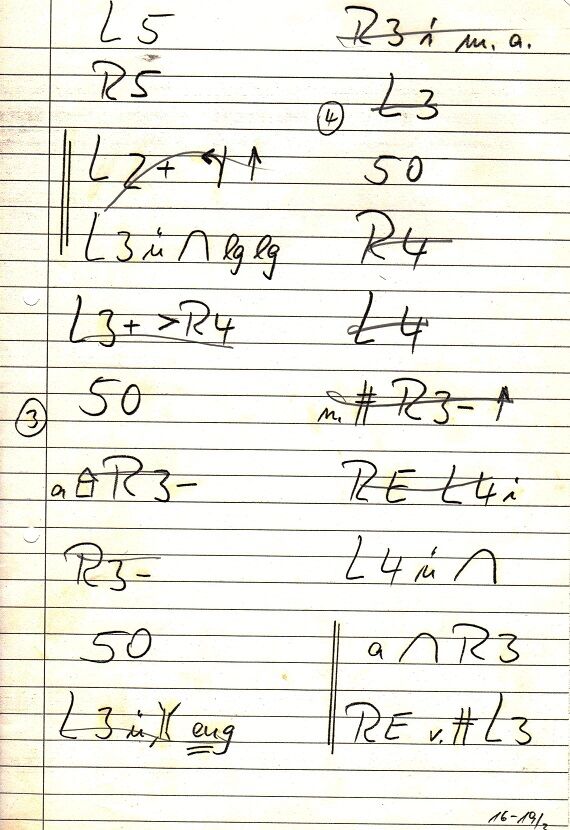 L5
R5
L2+ ↰ ↑
L3 in ∩ lg lg
L3+ >R4
③ 50
a R3-
R3-
50
L3 in )( eng
R3 i m. a.
④ L3
50
R4
L4
m. # R3- ↑
RE L4 i
L4 in ∩
a ∩ R3
RE v. # L3
16-19/2